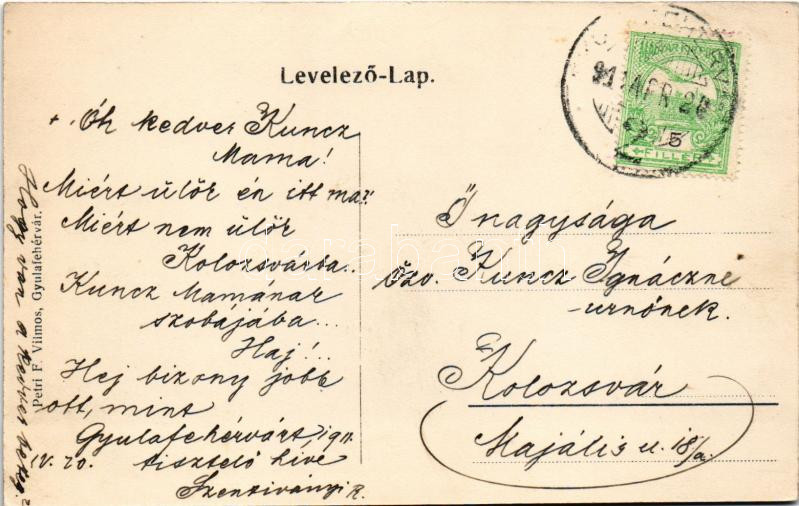 Levelező-Lap.
+. Óh kedves Kuncz
Mama!
Miért ülök én itt ma?
Miért nem ülök
Kolozsvárba..
Kuncz Mamának
szobájába...
Haj!..
Hej bizony jobb
ott, mint
Gyulafehérvárt,
IV. 20. tisztelő híve
Szentiványi R.
Hogy van a kedves beteg?
Petri F. Vilmos, Gyulafehérvár.
Őnagysága
Özv. Kuncz Ignáczné
-urnőnek.
Kolozsvár
Majális u. 18/a.
911 APR 20
5
FILLER
darabanth